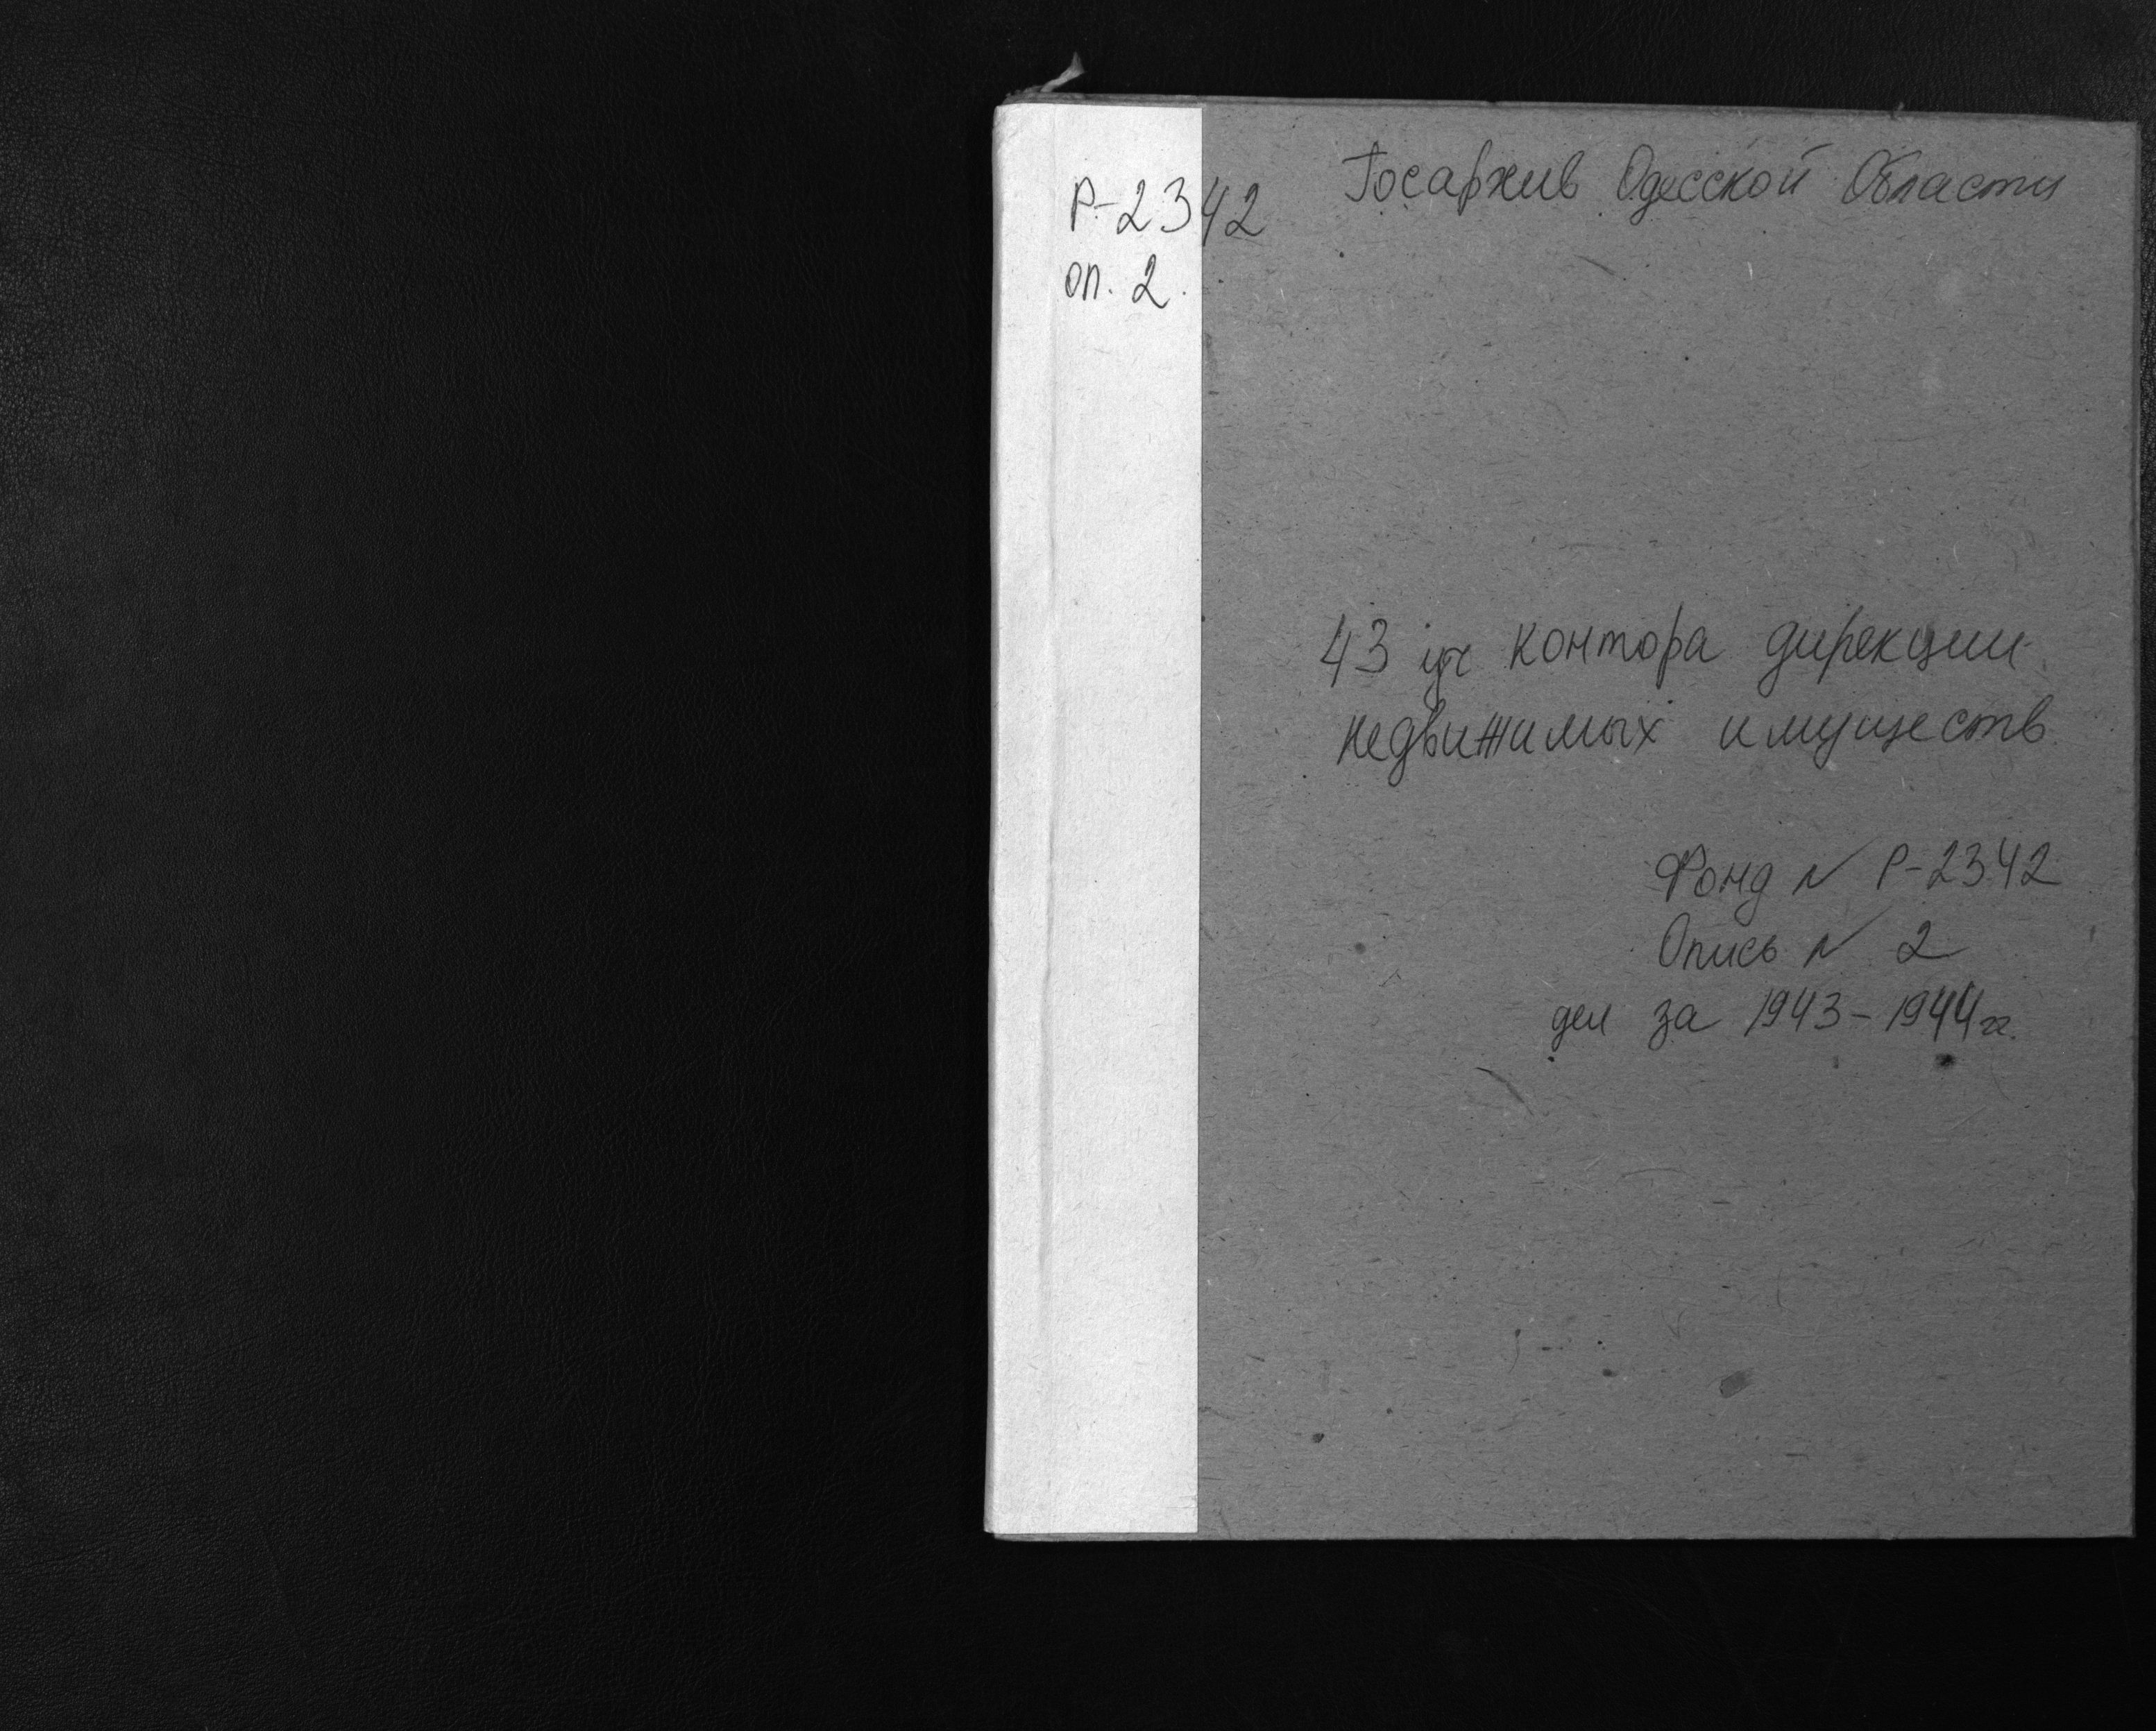 Р-2342
оп. 2.
Госархив Одесской Области
43 уч контора дирекции
недвижимых имуществ
Фонд N Р-2342
Опись N 2
дел за 1943-1944гг.